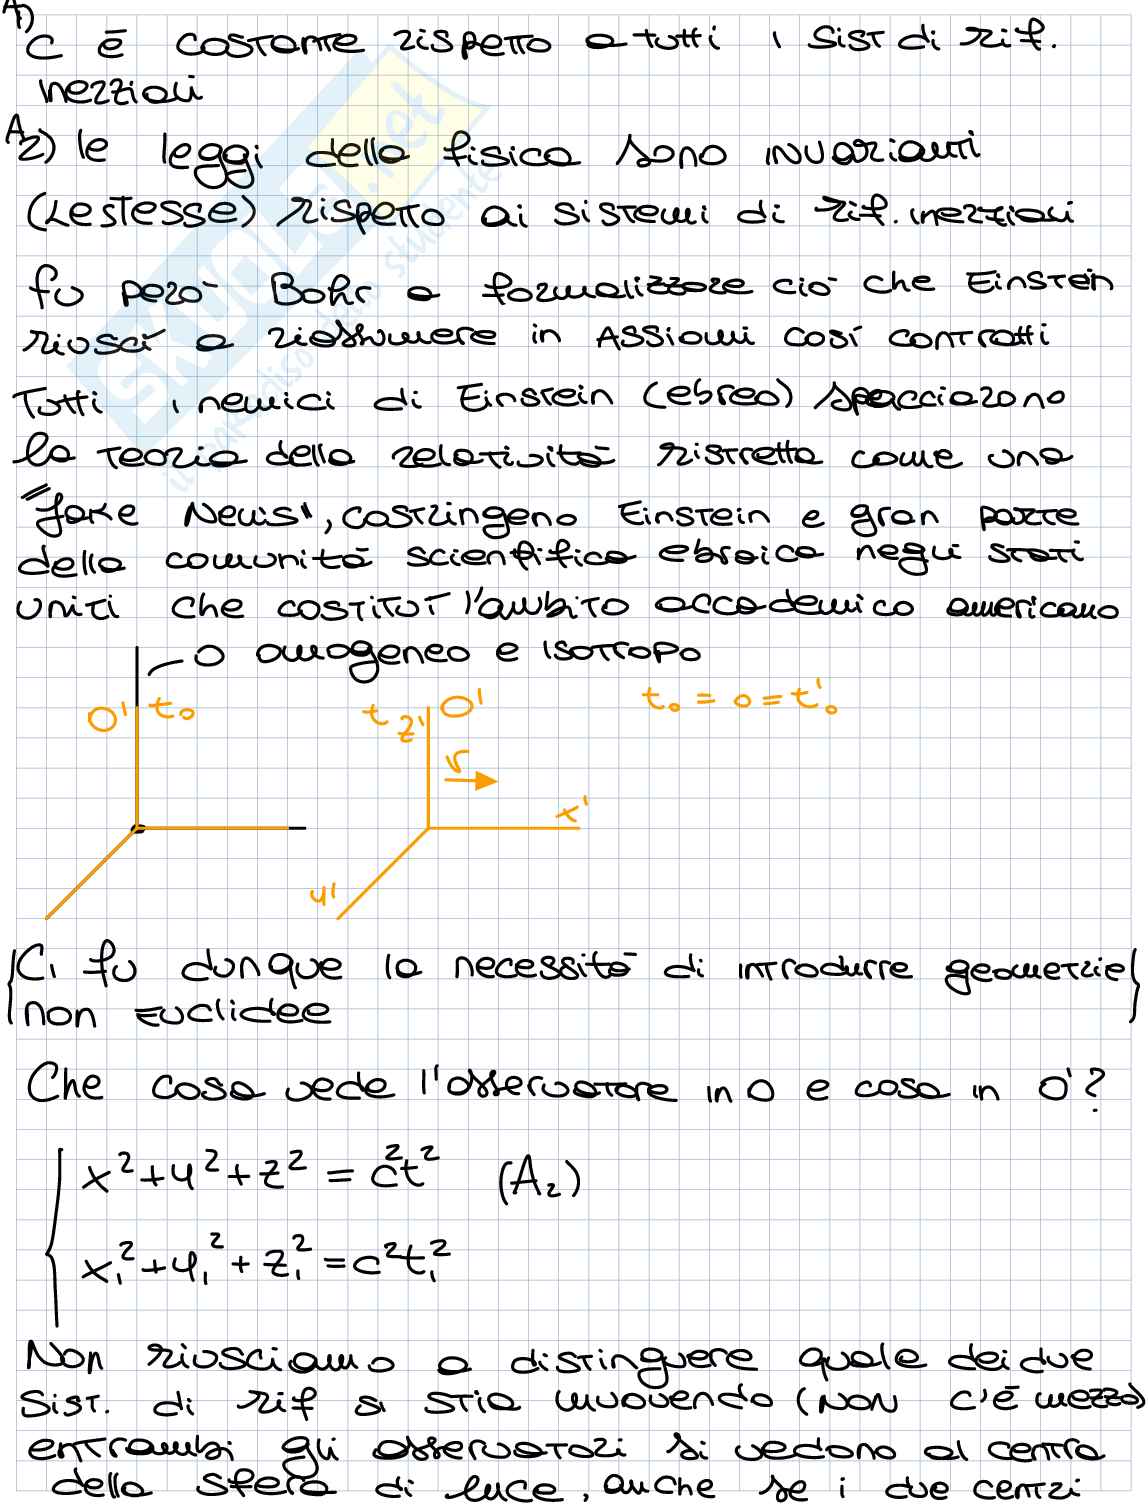 A1)
C è costante rispetto a tutti i sist di rif.
inerziali
A2) le leggi della fisica sono invarianti
(Le stesse) rispetto ai sistemi di rif. inerziali
fu però Bohr a formalizzare ciò che Einstein
riuscì a riassumere in Assiomi così contratti
Tutti i nemici di Einstein (ebreo) spacciarono
la teoria della relatività ristretta come una
"fake News", costringeno Einstein e gran parte
della comunità scienfifica ebraica negli stati
uniti che costituì l'ambito accademico americano
O omogeneo e isotropo
O' t₀
t z' O'
t₀ = 0 = t'₀
v
x'
y'
{Ci fu dunque la necessità di introdurre geometrie}
non Euclidee
Che cosa vede l'osservatore in O e cosa in O'?
x² + y² + z² = c²t² (A₂)
x₁² + y₁² + z₁² = c²t₁²
Non riusciamo a distinguere quale dei due
sist. di rif si stia muovendo (non c'è mezzo)
entrambi gli osservatori si vedono al centro
della sfera di luce, anche se i due centri
SKUOLA.net